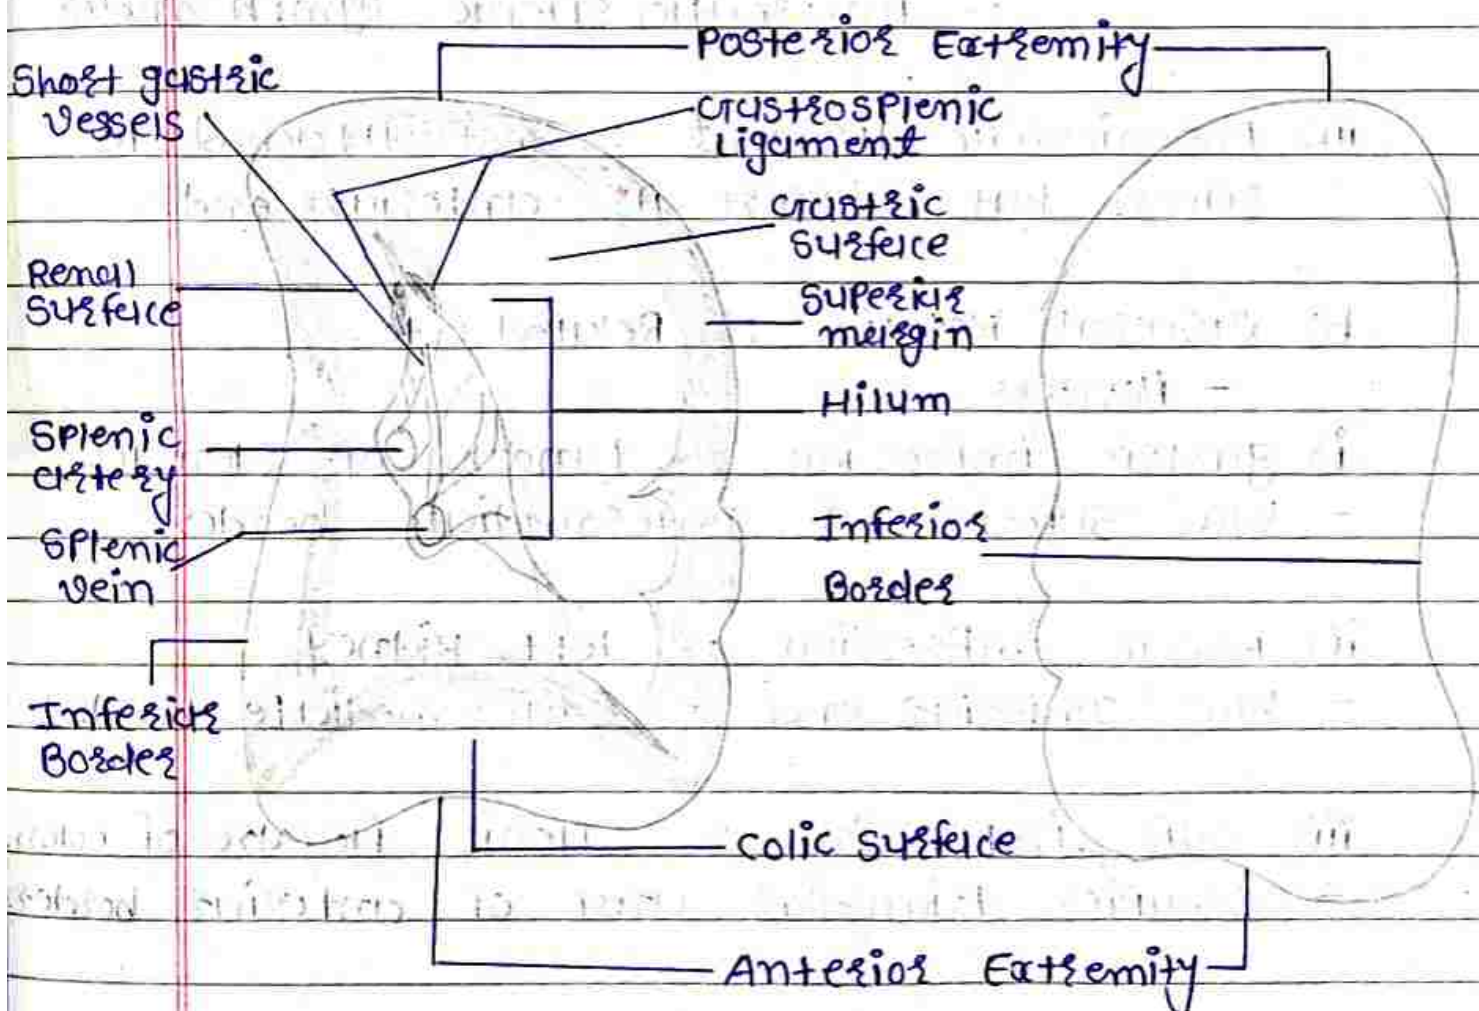 Posterior Extremity
Short gastric
vessels
Gastrosplenic
Ligament
Gastric
Surface
Renal
Surface
Superior
margin
Hilum
Splenic
artery
Splenic
vein
Inferior
Border
Inferior
Border
Colic Surface
Anterior Extremity